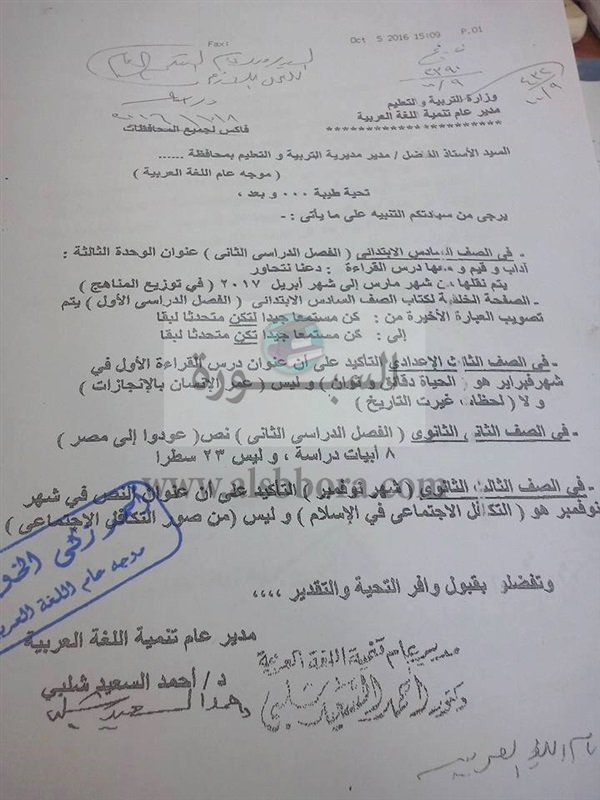 Oct 5 2016 15:09 P.01
Fax:
٢٣٩٠
١٠/٩
٤٣٢
١٠/٩
وزارة التربية و التعليم
مدير عام تنمية اللغة العربية
فاكس لجميع المحافظات
**********************
السيد الأستاذ الفاضل / مدير مديرية التربية و التعليم بمحافظة ......
( موجه عام اللغة العربية )
تحية طيبة ٠٠٠ و بعد ،
يرجى من سيادتكم التنبيه على ما يأتى : -
- فى الصف السادس الابتدائى ( الفصل الدراسى الثانى ) عنوان الوحدة الثالثة :
آداب و قيم و درس القراءة : دعنا نتحاور
يتم نقلها من شهر مارس إلى شهر أبريل ٢٠١٧ ( في توزيع المناهج )
- الصفحة الخلفية لكتاب الصف السادس الابتدائى ( الفصل الدراسى الأول ) يتم
تصويب العبارة الأخيرة من : كن مستمعا جيدا لتكن متحدثا لبقا
إلى : كن مستمعا جيدا تكن متحدثا لبقا
- فى الصف الثالث الإعدادى التأكيد على أن عنوان درس القراءة الأول في
شهر فبراير هو ( الحياة دقائق و ثوان ) و ليس ( عمر الإنسان بالإنجازات )
و لا ( لحظات غيرت التاريخ )
- فى الصف الثانى الثانوى ( الفصل الدراسى الثانى ) نص ( عودوا إلى مصر )
٨ أبيات دراسة ، و ليس ٢٣ سطرا
السبورة
www.alsbbora.com
- فى الصف الثالث الثانوى ( شهر نوفمبر ) التأكيد على أن عنوان النص في شهر
نوفمبر هو ( التكافل الاجتماعى في الإسلام ) و ليس ( من صور التكافل الاجتماعى )
موجه عام اللغة العربية
وتفضلو بقبول وافر التحية والتقدير ،،،،
مدير عام تنمية اللغة العربية
د / أحمد السعيد شلبي
مدير عام تنمية اللغة العربية
دكتور أحمد السعيد شلبي
أحمد السعيد شلبي
عام اللغة العربية